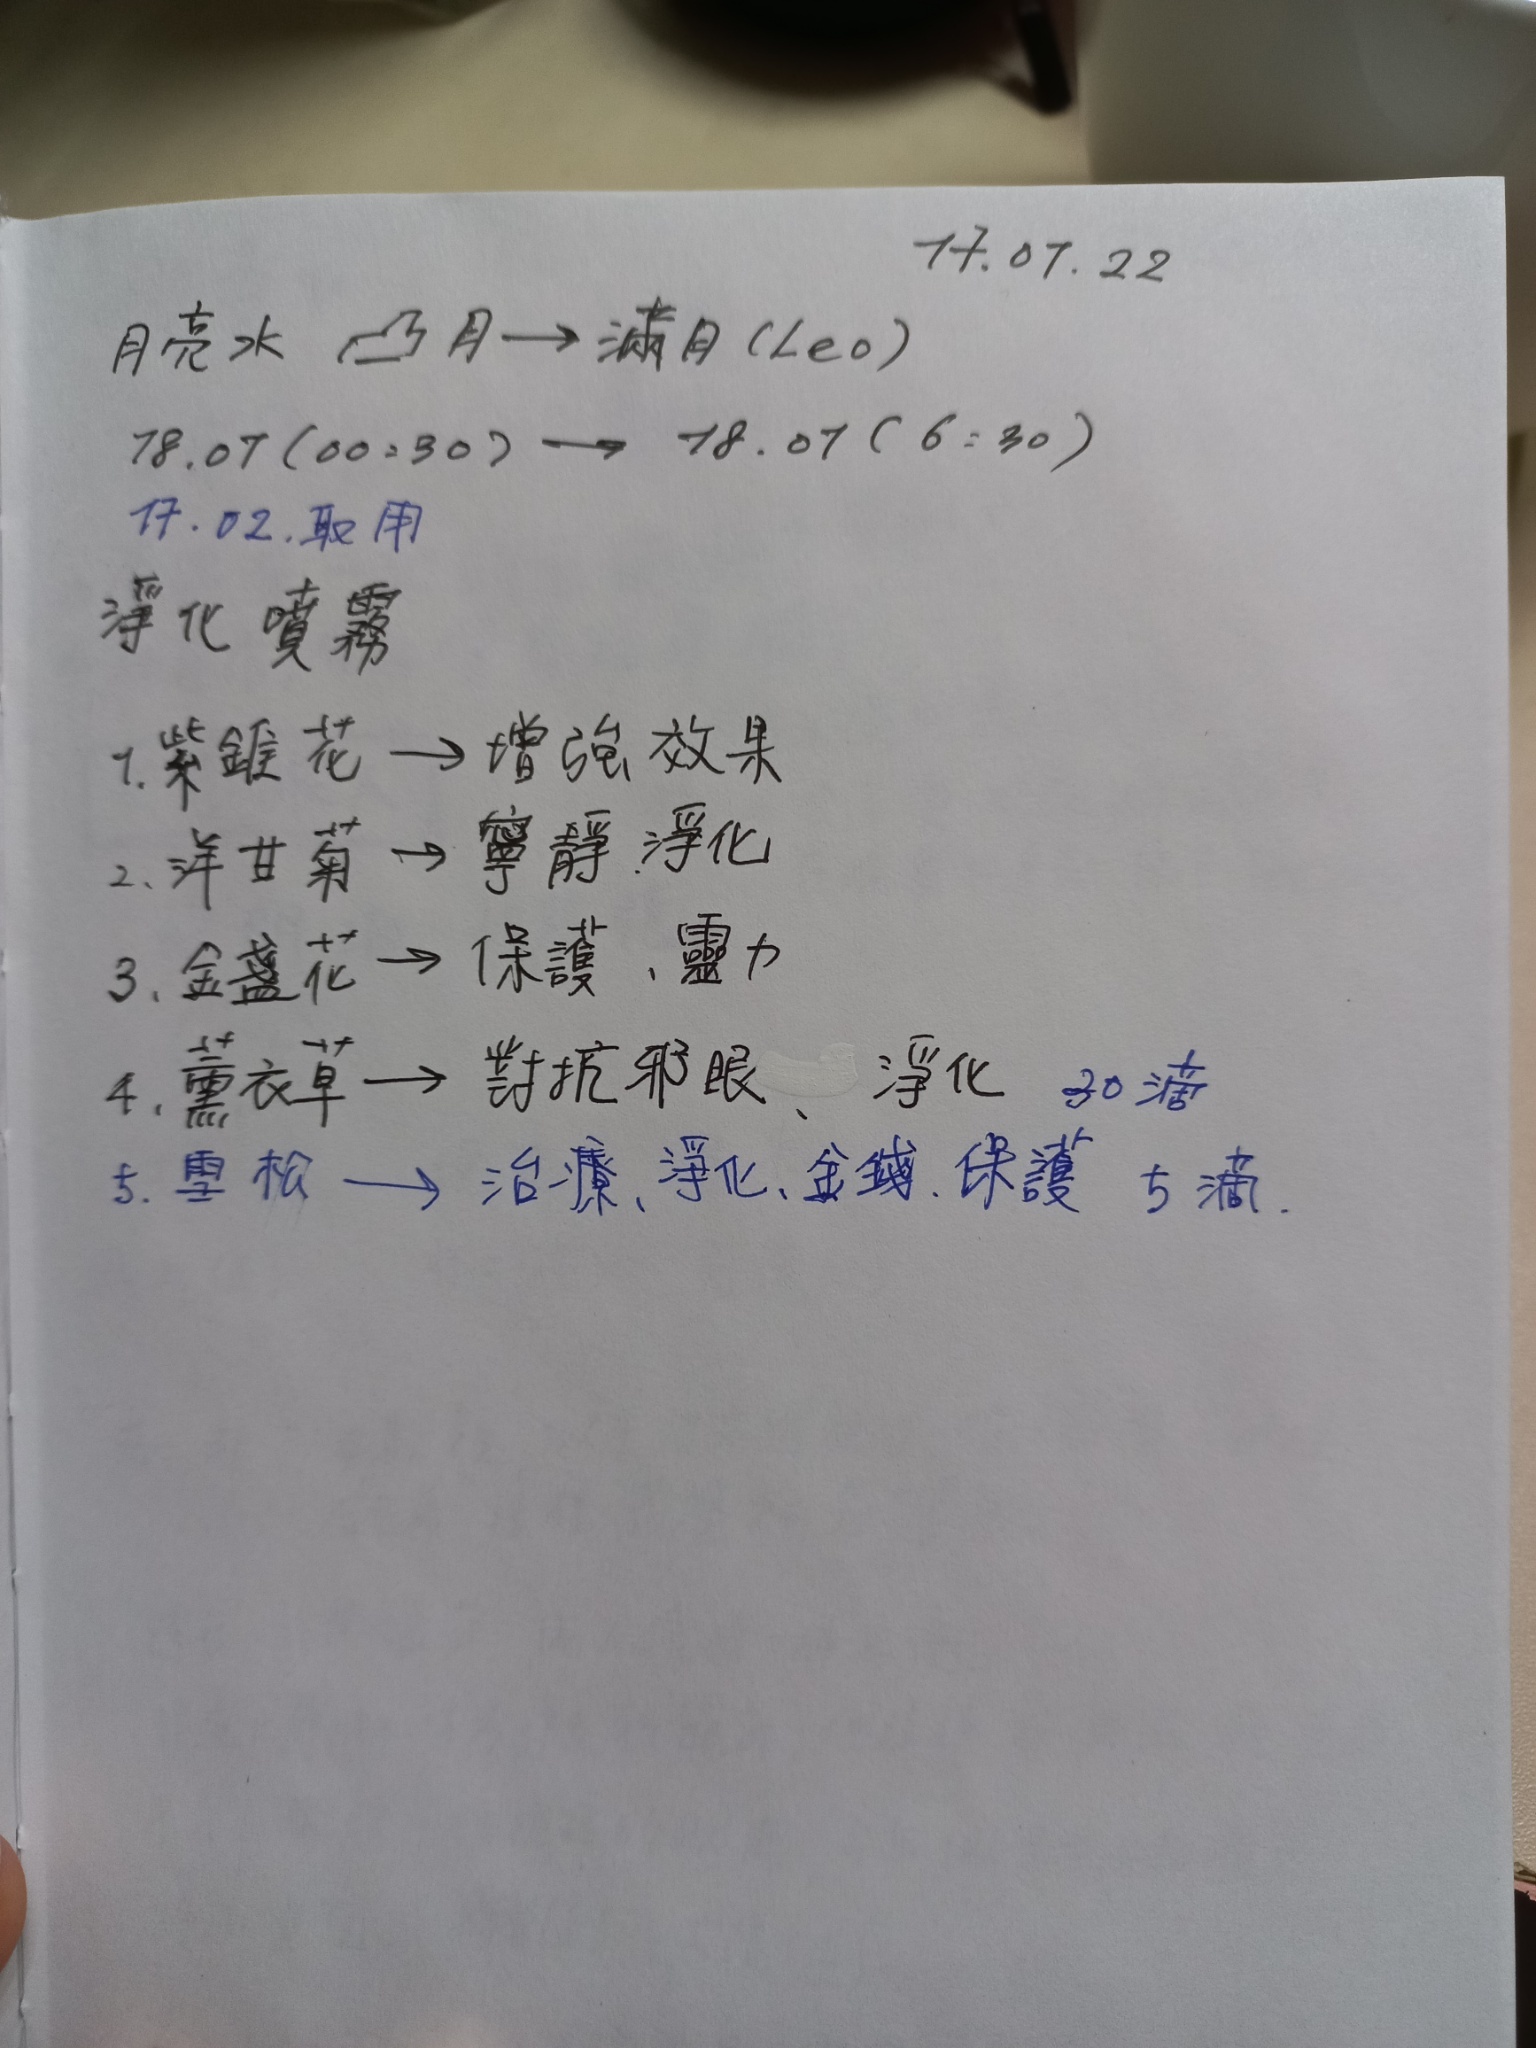 17.01.22
月亮水 凸月→滿月(Leo)
18.01(00:30) → 18.01(6:30)
17.02.取用
淨化噴霧
1.紫錐花→增強效果
2、洋甘菊→寧靜.淨化
3、金盞花→保護、靈力
4、薰衣草→對抗邪眼、淨化 30滴
5.雪松→治療、淨化、金錢.保護 5滴.